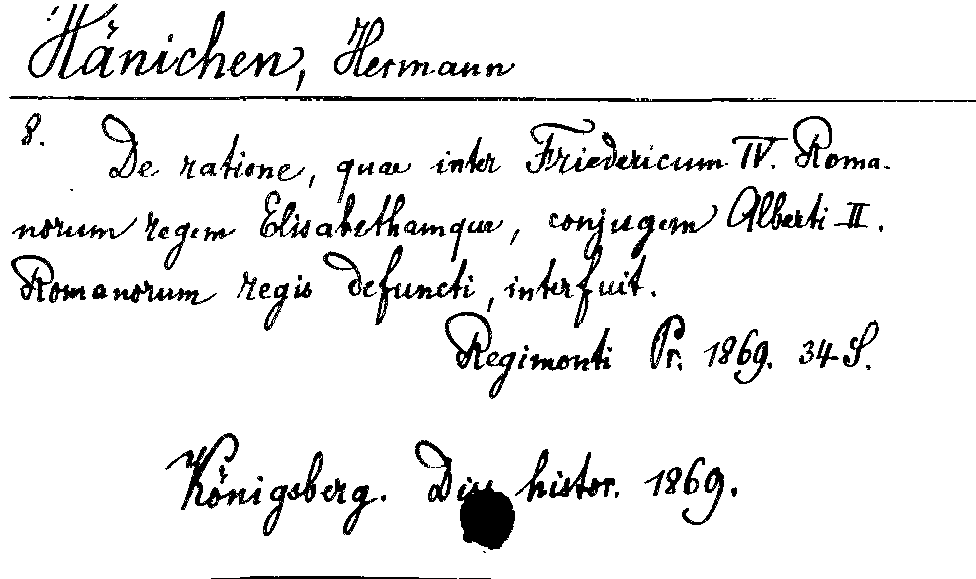 Hänichen, Hermann
8. De ratione, quae inter Friedericum IV. Roma-
norum regem Elisabethamque, conjugem Alberti II.
Romanorum regis defuncti, interfuit.
Regimonti Pr. 1869. 34 S.
Königsberg. Diss histor. 1869.